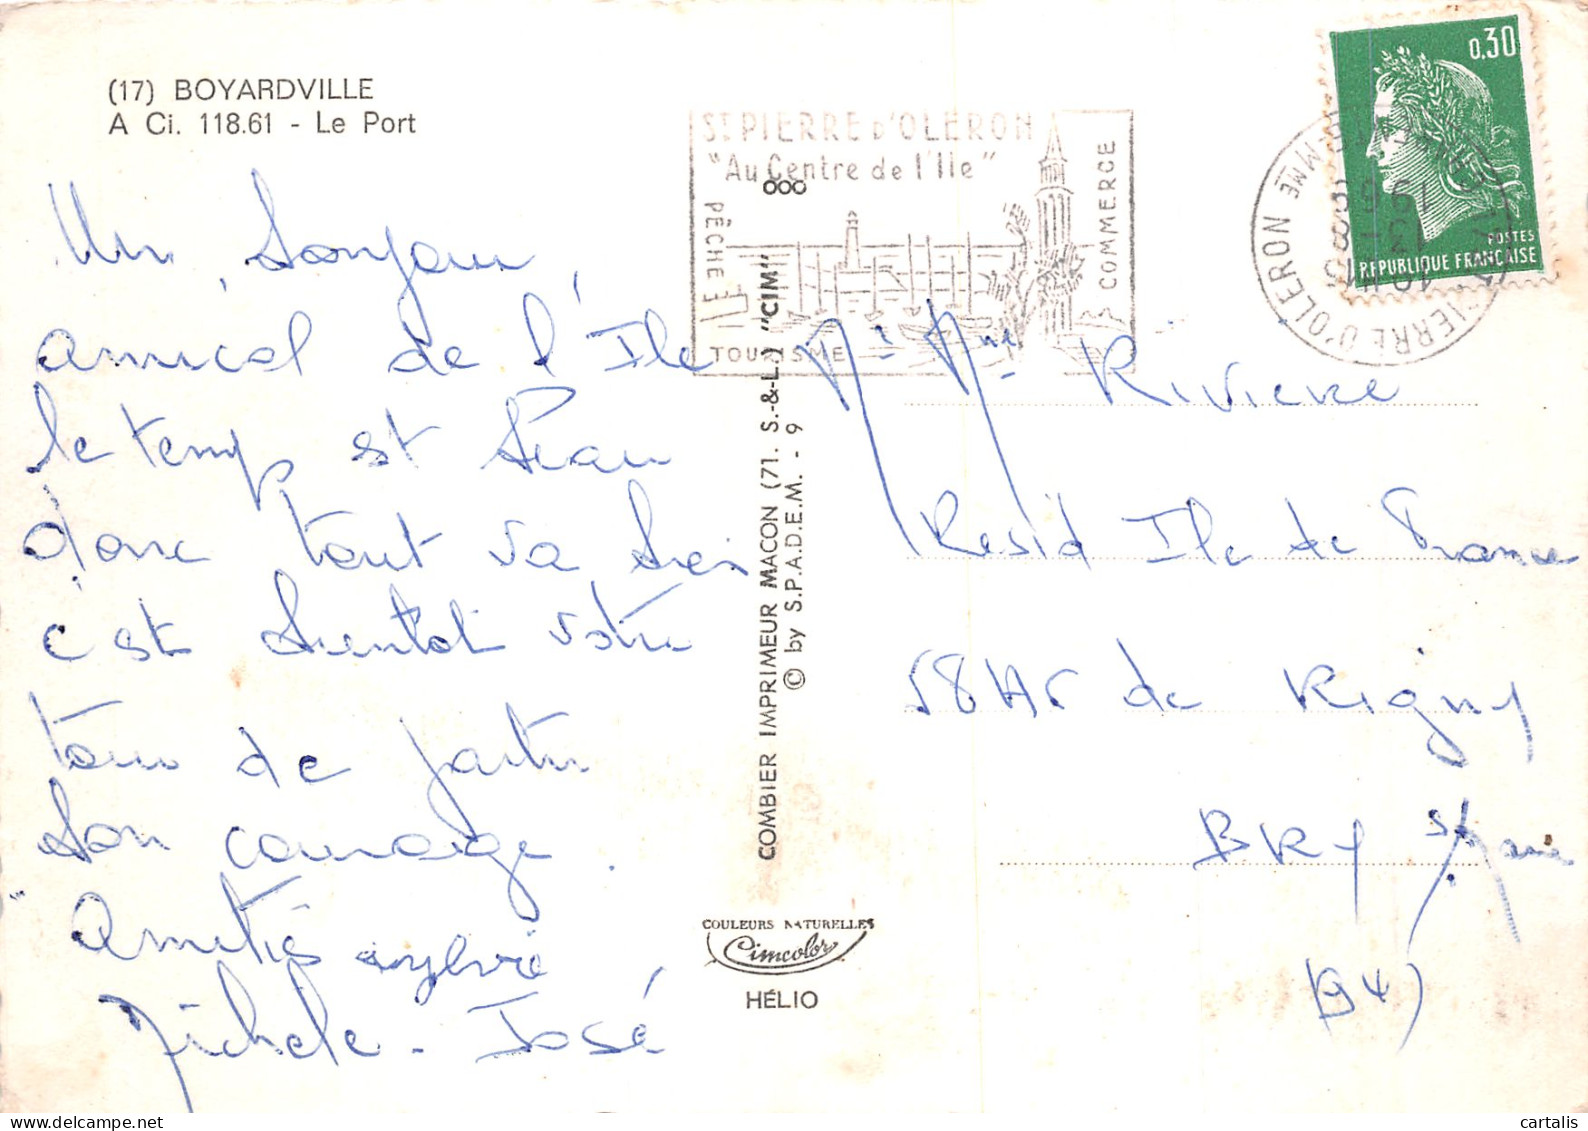 (17) BOYARDVILLE
A Ci. 118.61 - Le Port
Un bonjour
amical de l'Ile
le temps est beau
donc tout va bien
c'est bientôt votre
tour de partir
bon courage.
Amitiés Sylvie
Michele - José
ST PIERRE D'OLERON
"Au Centre de l'Ile"
PÊCHE
COMMERCE
TOURISME
000
COMBIER IMPRIMEUR MACON (71. S.-&-L.) "CIM"
© by S.P.A.D.E.M. - 9
COULEURS NATURELLES
Cimcolor
HÉLIO
0,30
POSTES
REPUBLIQUE FRANÇAISE
PIERRE D'OLERON
13-8
1969
Mr Mme Riviere
Resid Ile de France
58 Av de Rigny
BRY s/ Marne
(94)
cartalis